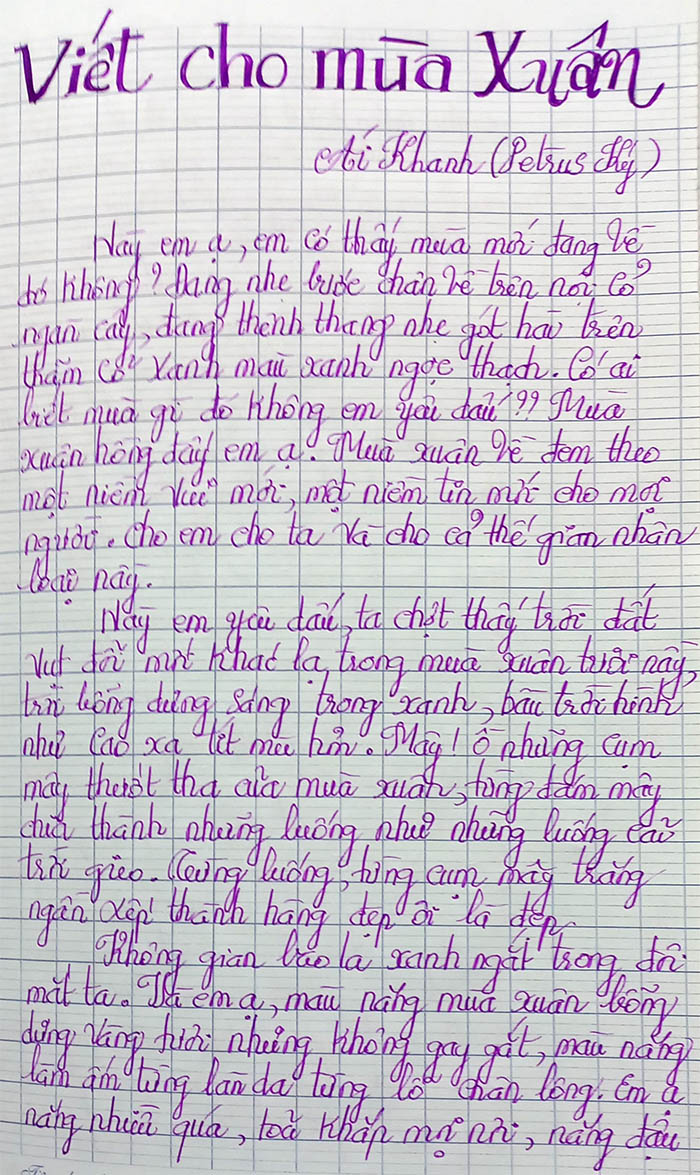 Viết cho mùa Xuân
Ái Khanh (Petrus Ký)
Này em ạ, em có thấy mùa mới đang về
đó không? Đang nhẹ bước chân về trên nội cỏ
ngàn cây, đang thênh thang nhẹ gót hài trên
thảm cỏ xanh màu xanh ngọc thạch. Có ai
biết mùa gì đó không em yêu dấu?? Mùa
xuân hồng đấy em ạ. Mùa xuân về đem theo
một niềm vui mới, một niềm tin mới cho mọi
người. Cho em cho ta và cho cả thế gian nhân
loại này.
Này em yêu dấu, ta chợt thấy trời đất
vụt đổi mới khác lạ trong mùa xuân tươi này,
trời bỗng dưng sáng trong xanh, bầu trời hình
như cao xa tít mù hơn. Mây! Ồ những cụm
mây thướt tha của mùa xuân, từng đám mây
chia thành những luống như những luống cải
trời gieo. Từng luống, từng cụm mây trắng
ngần xếp thành hàng đẹp ôi là đẹp.
Không gian bao la xanh ngát trong đôi
mắt ta. Và em ạ, màu nắng mùa xuân bỗng
dưng vàng tươi nhưng không gay gắt, màu nắng
làm ấm từng làn da từng lỗ chân lông. Em ạ
nắng nhiều quá, toả khắp mọi nơi, nắng đậu